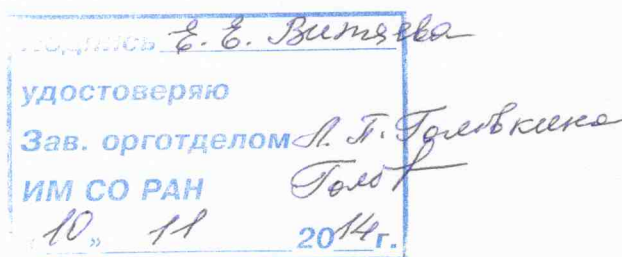 Подпись Е. Е. Витяева
удостоверяю
Зав. орготделом Л. П. Головкина
ИМ СО РАН Голов
10 " 11 2014 г.